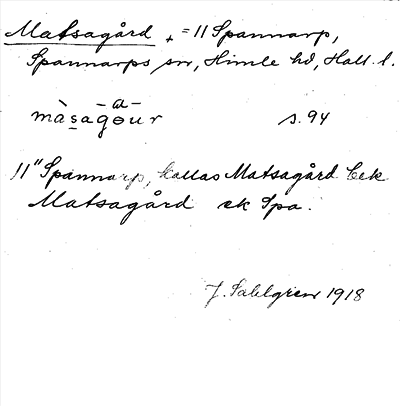 Matsagård + = 11 Spannarp,
Spannarps sn, Himle hd, Hall. l.
–a–
màsagour s. 94
11 "Spannarp, kallas Matsagård Cek
Matsagård ek Spa.
J. Sahlgren 1918